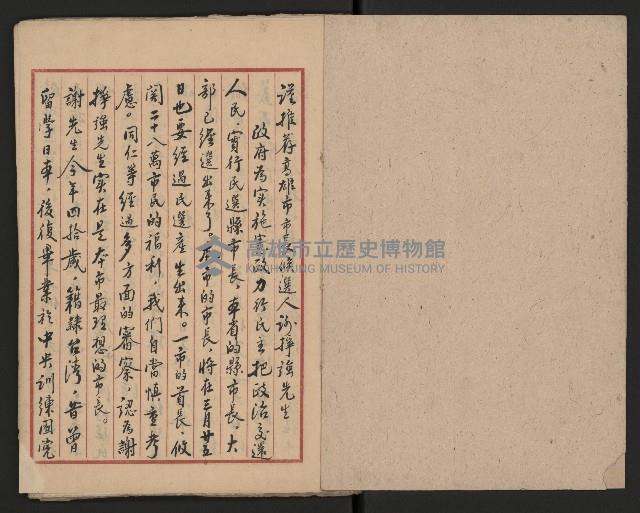 謹推荐高雄市市長候選人謝掙強先生
政府為实施憲政力行民主把政治交還
人民，實行民選縣市長，本省的縣市長，大
部已經選出來了，本市的市長將在三月廿五
日也要經過民選產生出來。一市的首長，攸
関二十八萬市民的福利，我們自當慎重考
慮。同仁等經過多方面的審察，認為謝
掙強先生实在是本市最理想的市長。
謝先生今年四拾歲，籍隸台湾，昔曾
留學日本，後復畢業於中央訓練團党
高雄市立歷史博物館
KAOHSIUNG MUSEUM OF HISTORY